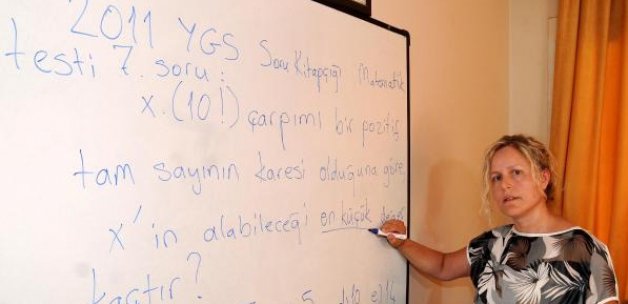 2011 YGS Soru Kitapçığı Matematik
testi 7. soru:
x.(10!) çarpımı bir pozitif
tam sayının karesi olduğuna göre
x'in alabileceği en küçük değer
kaçtır?